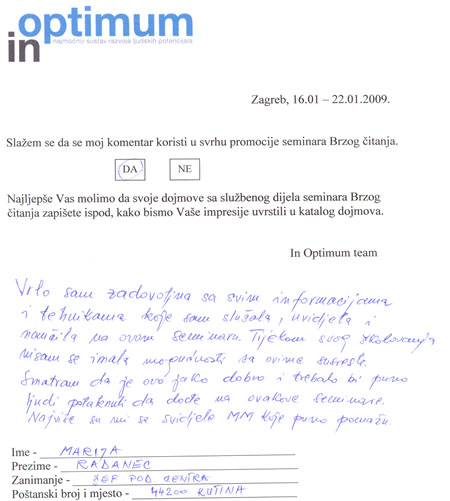 in optimum
najmoćniji sustav razvoja ljudskih potencijala
Zagreb, 16.01 – 22.01.2009.
Slažem se da se moj komentar koristi u svrhu promocije seminara Brzog čitanja.
DA NE
Najljepše Vas molimo da svoje dojmove sa službenog dijela seminara Brzog
čitanja zapišete ispod, kako bismo Vaše impresije uvrstili u katalog dojmova.
In Optimum team
Vrlo sam zadovoljna sa svim informacijama
i tehnikama koje sam slušala, uvidjela i
naučila na ovom seminaru. Tijekom svog školovanja
nisam se imala mogućnosti sa ovime susresti.
Smatram da je ovo jako dobro i trebalo bi puno
ljudi potaknuti da dođe na ovakove seminare.
Najviše su mi se svidjele MM koje puno pomažu.
Ime - MARIJA
Prezime - RADANEC
Zanimanje - ŠEF POD. CENTRA
Poštanski broj i mjesto - 44200 KUTINA